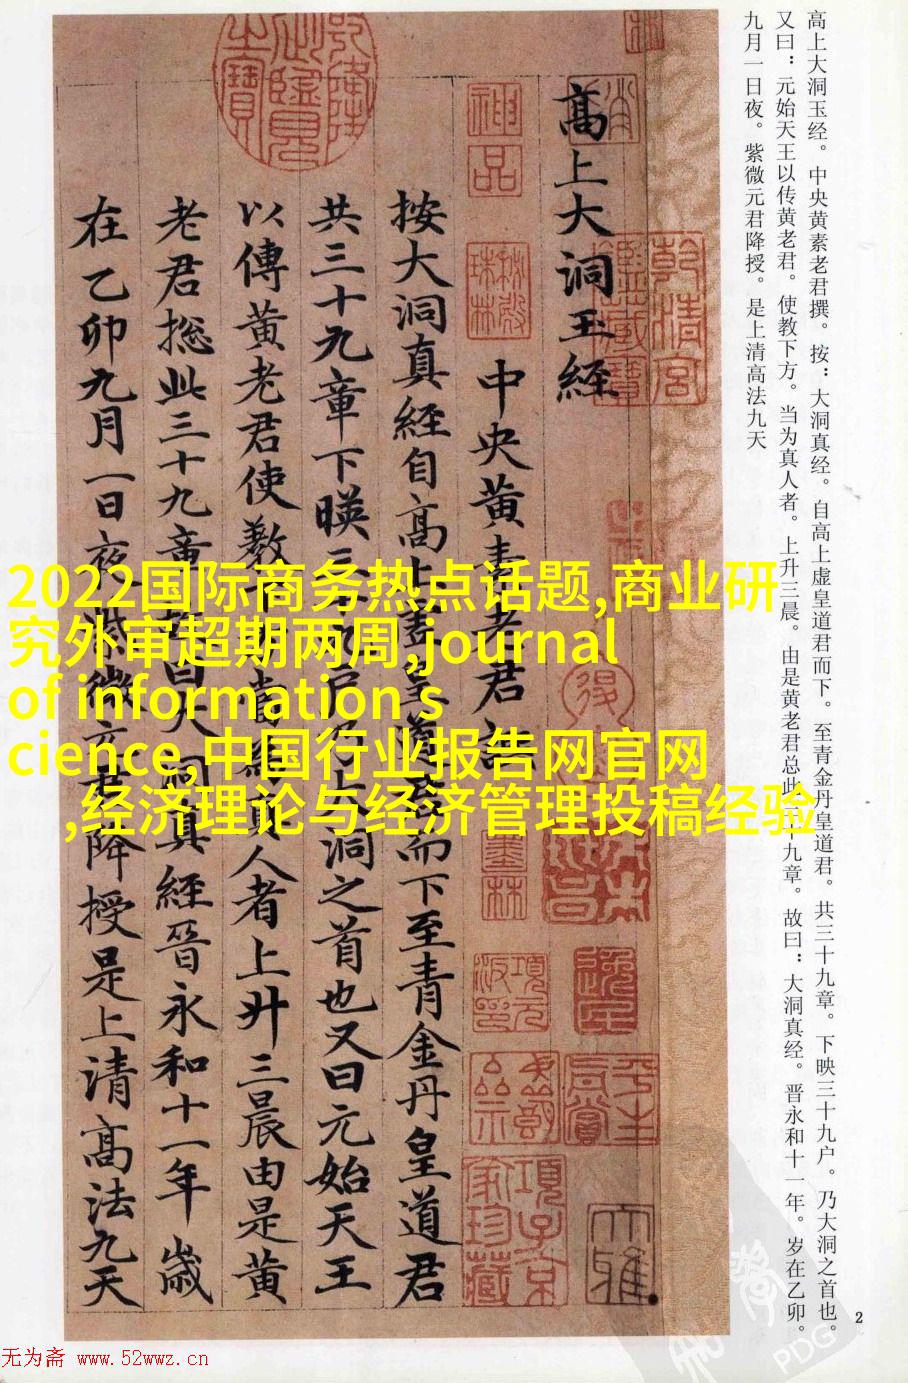 高上大洞玉经。中央黄素老君撰。按：大洞真经。自高上虚皇道君而下。至青金丹皇道君。共三十九章。下映三十九户。乃大洞之首也。
又曰：元始天王以传黄老君。使教下方。当为真人者。上升三晨。由是黄老君总此三十九章。故曰：大洞真经。晋永和十一年。岁在乙卯。
九月一日夜。紫微元君降授。是上清高法九天
高上大洞玉經
中央黄素老君
按大洞真經自高上
皇
而下至青金丹皇道君
共三十九章下暎三
乃上洞之首也又曰元始天王
以傳黄老君使教
當
人者上升三晨由是黄
老君揔此三十九章
曰大洞真經晉永和十一年歲
在乙卯九月一日夜
微
君降授是上清高法九天
神品
乾清宮鑑藏寶
2022国际商务热点话题,商业研
究外审超期两周,journal
of information s
cience,中国行业报告网官网
,经济理论与经济管理投稿经验
2
PDG
无为斋 www.52wwz.cn